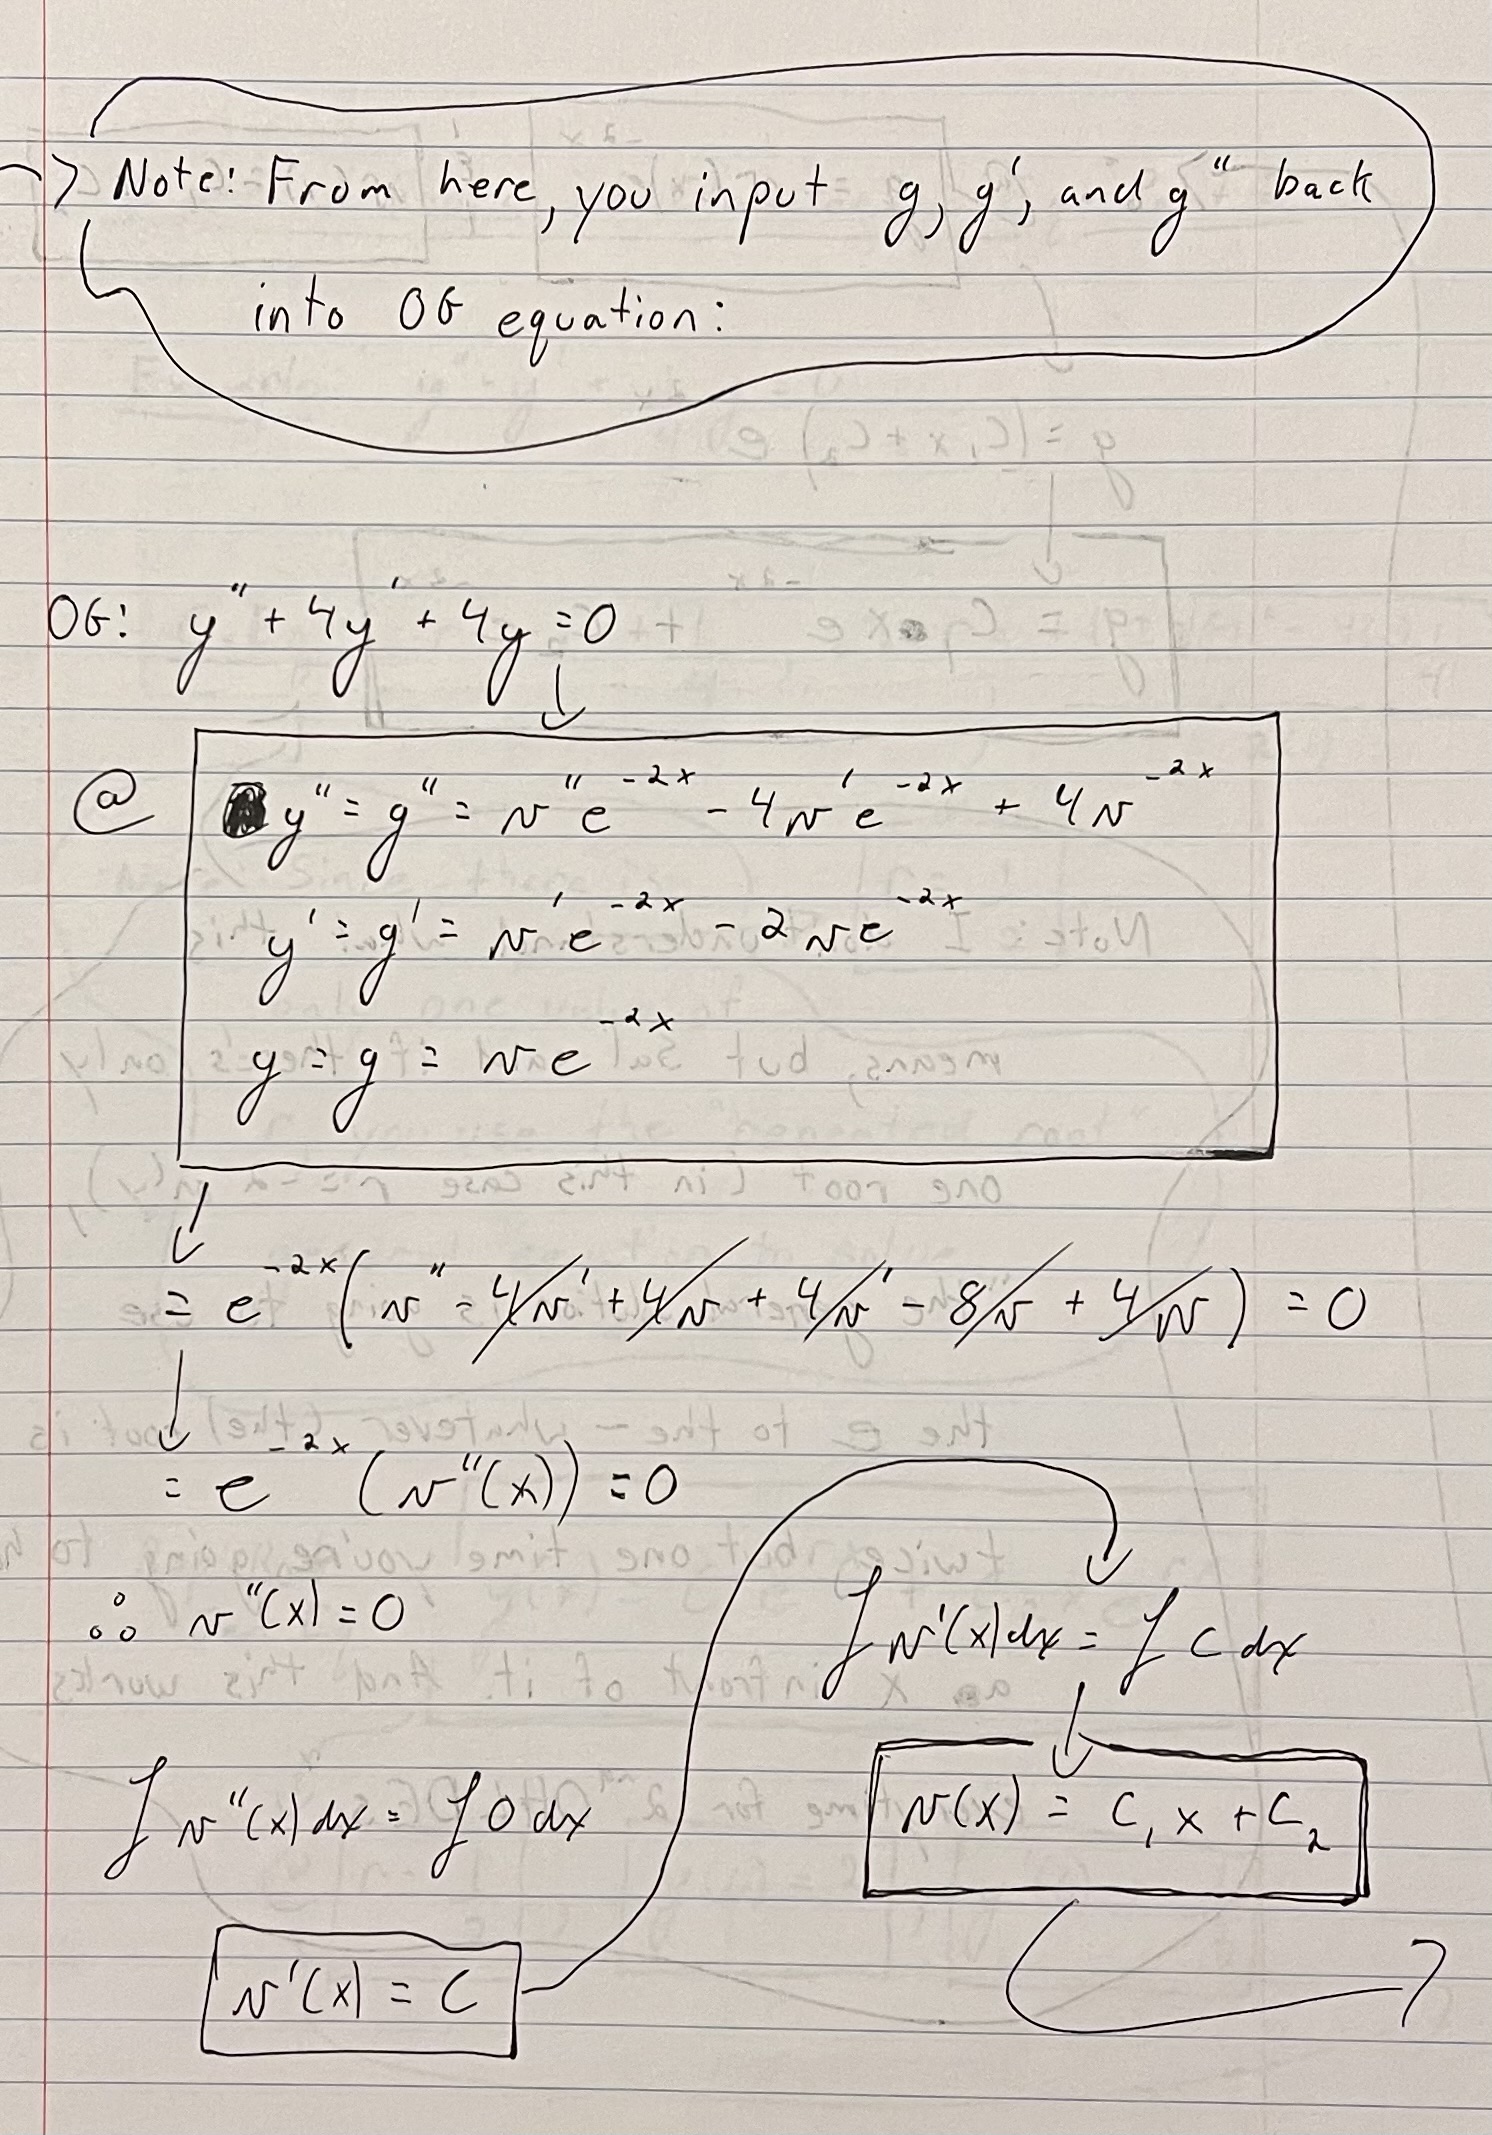 Note: From here, you input g, g', and g" back
into OG equation:
OG: y" + 4y' + 4y = 0
@
y" = g" = v"e^-2x - 4v'e^-2x + 4v^-2x
y' = g' = v'e^-2x - 2ve^-2x
y = g = ve^-2x
= e^-2x (v" - 4v' + 4v + 4v' - 8v + 4v) = 0
= e^-2x (v"(x)) = 0
∴ v"(x) = 0
∫ v"(x) dx = ∫ 0 dx
v'(x) = C
∫ v'(x) dx = ∫ C dx
v(x) = C₁x + C₂